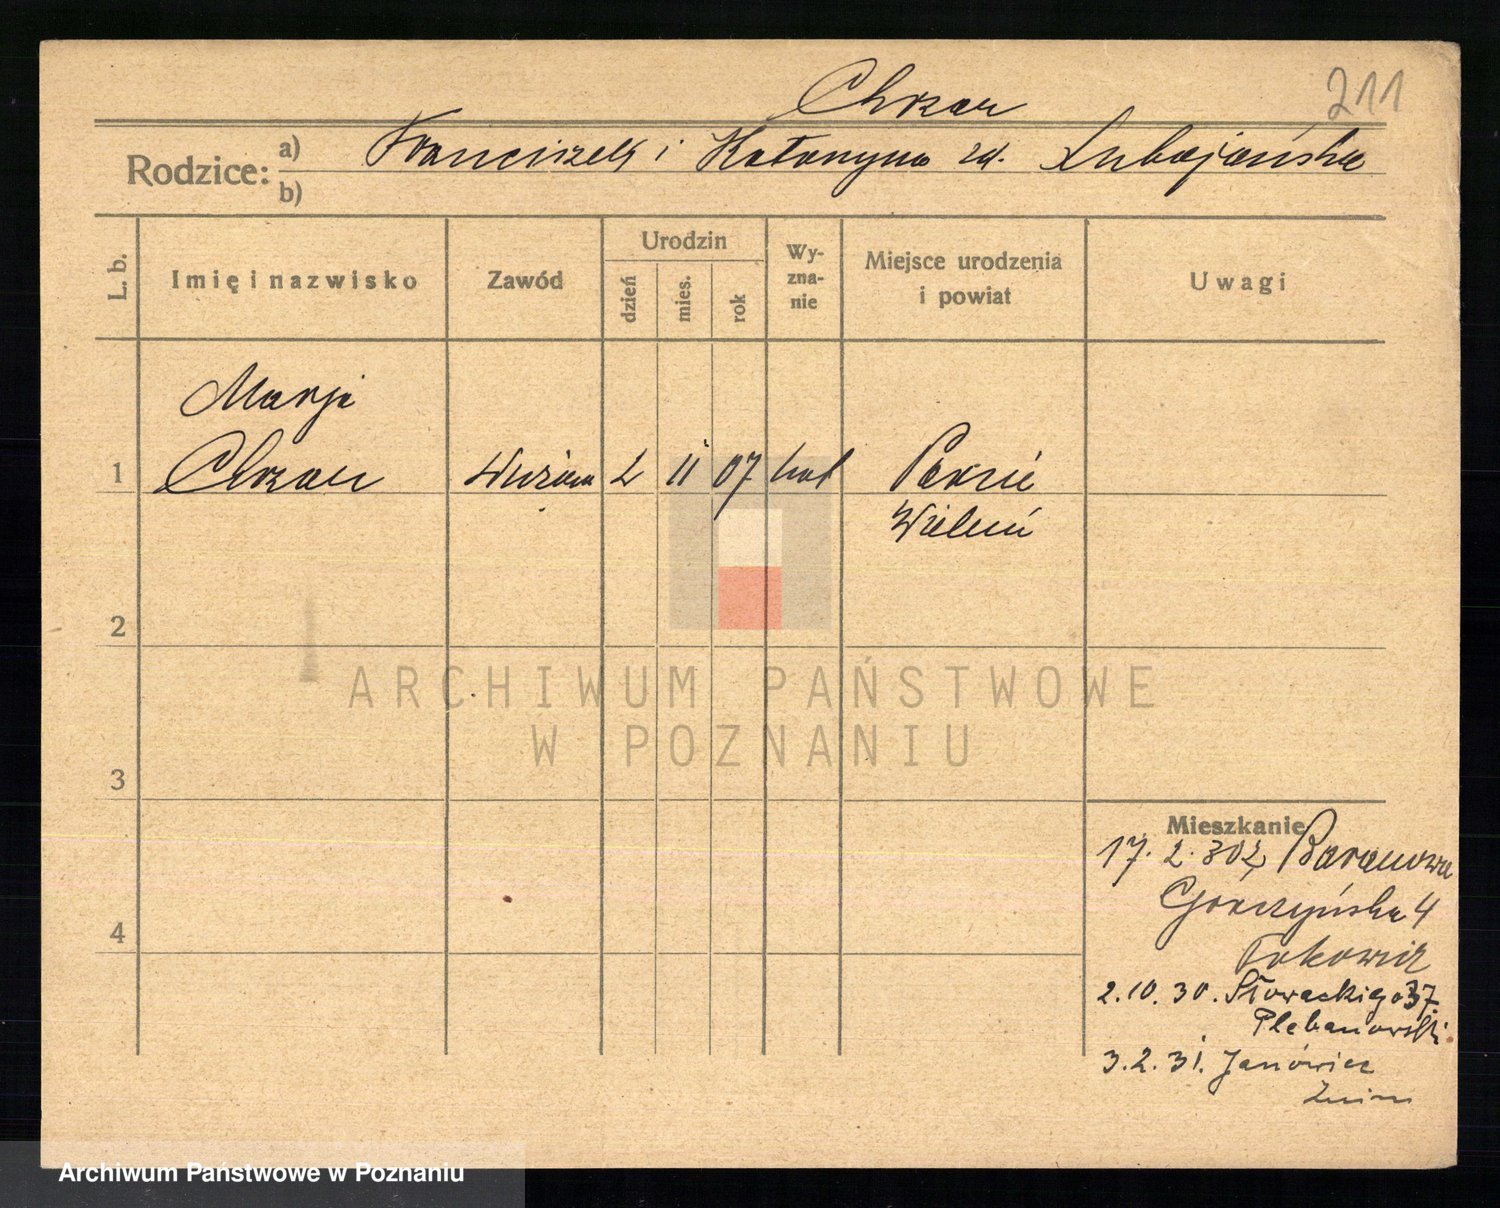 211
Chrzan
Rodzice: a) Franciszek i Katarzyna zd. Lubojańska
b)
L. b. Imię i nazwisko Zawód Urodzin dzień mies. rok Wyznanie Miejsce urodzenia i powiat Uwagi
Marja
1 Chrzan 2 11 07 kat
Wieluń
2
ARCHIWUM PAŃSTWOWE
W POZNANIU
3
Mieszkanie
17. 2. 30 z Baranowa
4 Górczyńska 4
2.10.30. Słowackiego 37
Plebanowski
3.2.31. Janówiec
Żnin
Archiwum Państwowe w Poznaniu